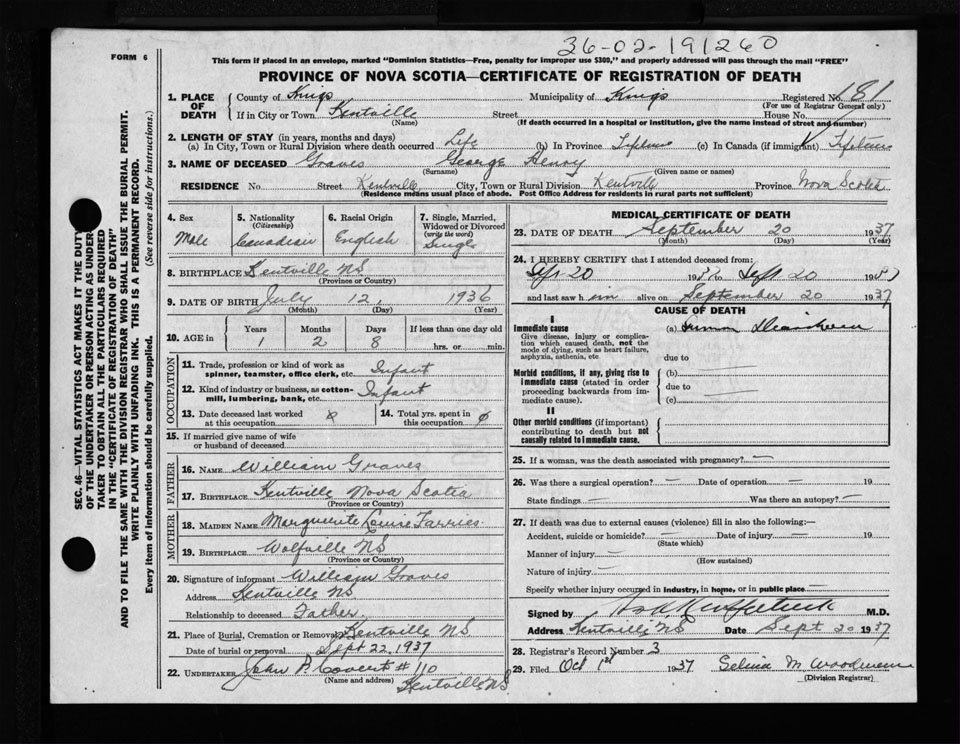 36-02-191260
FORM 6
This form if placed in an envelope, marked "Dominion Statistics—Free, penalty for improper use $300," and properly addressed will pass through the mail "FREE"
PROVINCE OF NOVA SCOTIA—CERTIFICATE OF REGISTRATION OF DEATH
SEC. 46—VITAL STATISTICS ACT MAKES IT THE DUTY
OF THE UNDERTAKER OR PERSON ACTING AS UNDER-
TAKER TO OBTAIN ALL THE PARTICULARS REQUIRED
IN THE "CERTIFICATE OF REGISTRATION OF DEATH"
AND TO FILE THE SAME WITH THE DIVISION REGISTRAR WHO SHALL ISSUE THE BURIAL PERMIT.
WRITE PLAINLY WITH UNFADING INK. THIS IS A PERMANENT RECORD.
Every item of information should be carefully supplied. (See reverse side for instructions.)
1. PLACE OF DEATH County of Kings Municipality of Kings Registered No. 181
(For use of Registrar General only)
If in City or Town Kentville Street House No.
(Name) (If death occurred in a hospital or institution, give the name instead of street and number)
2. LENGTH OF STAY (in years, months and days)
(a) In City, Town or Rural Division where death occurred Life (b) In Province Lifetime (c) In Canada (if immigrant) Lifetime
3. NAME OF DECEASED Graves George Henry
(Surname) (Given name or names)
RESIDENCE No. Street Kentville City, Town or Rural Division Kentville Province Nova Scotia
(Residence means usual place of abode. Post Office Address for residents in rural parts not sufficient)
4. Sex 5. Nationality (Citizenship) 6. Racial Origin 7. Single, Married, Widowed or Divorced (write the word)
Male Canadian English Single
8. BIRTHPLACE Kentville NS
(Province or Country)
9. DATE OF BIRTH July 12, 1936
(Month) (Day) (Year)
10. AGE in Years Months Days If less than one day old
1 2 8 hrs. or min.
OCCUPATION
11. Trade, profession or kind of work as spinner, teamster, office clerk, etc. Infant
12. Kind of industry or business, as cotton-mill, lumbering, bank, etc. Infant
13. Date deceased last worked at this occupation 14. Total yrs. spent in this occupation
15. If married give name of wife or husband of deceased
FATHER
16. NAME William Graves
17. BIRTHPLACE Kentville Nova Scotia
(Province or Country)
MOTHER
18. MAIDEN NAME Marguerite Louise Farries
19. BIRTHPLACE Wolfville NS
(Province or Country)
20. Signature of informant William Graves
Address Kentville NS
Relationship to deceased Father
21. Place of Burial, Cremation or Removal Kentville NS
Date of burial or removal Sept 22, 1937
22. UNDERTAKER John P. Covert # 110
(Name and address) Kentville NS
MEDICAL CERTIFICATE OF DEATH
23. DATE OF DEATH September 20 1937
(Month) (Day) (Year)
24. I HEREBY CERTIFY that I attended deceased from:
20 1937 to Sept 20 1937
and last saw him alive on September 20 1937
CAUSE OF DEATH
I
Immediate cause (a)
Give disease, injury or complication which caused death, not the mode of dying, such as heart failure, asphyxia, asthenia, etc. due to
Morbid conditions, if any, giving rise to immediate cause (stated in order proceeding backwards from immediate cause). (b)
due to
(c)
II
Other morbid conditions (if important) contributing to death but not causally related to immediate cause.
25. If a woman, was the death associated with pregnancy? —
26. Was there a surgical operation? — Date of operation — 19
State findings Was there an autopsy? —
27. If death was due to external causes (violence) fill in also the following:—
Accident, suicide or homicide? — Date of injury — 19
(State which)
Manner of injury —
(How sustained)
Nature of injury —
Specify whether injury occurred in industry, in home, or in public place —
Signed by M.D.
Address Kentville NS Date Sept 20 1937
28. Registrar's Record Number 3
29. Filed Oct 1st 1937 Selina M Woodman
(Division Registrar)